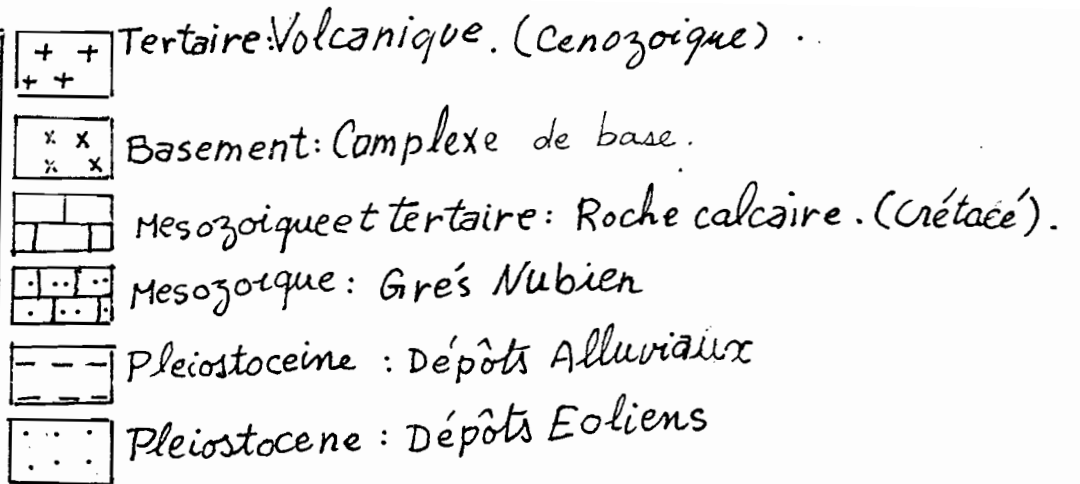 Tertaire: Volcanique. (Cenozoique).
Basement: Complexe de base.
Mesozoique et tertaire: Roche calcaire. (Crétacé).
Mesozoique: Grés Nubien
Pleiostoceine: Dépôts Alluviaux
Pleiostocene: Dépôts Eoliens